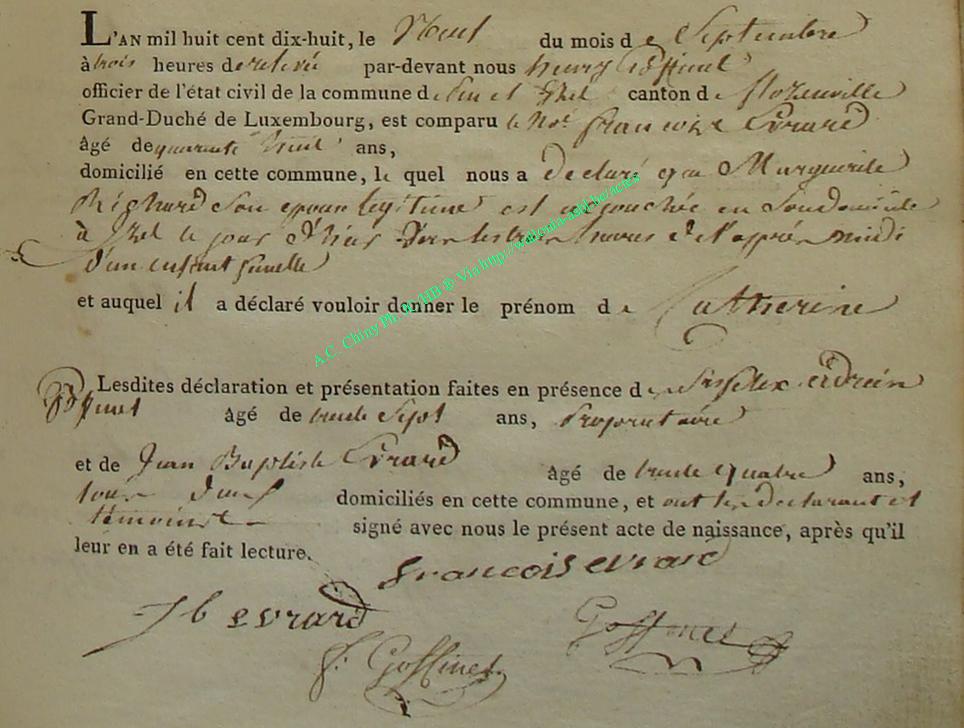 L'AN mil huit cent dix-huit, le Neuf du mois de Septembre
à trois heures de relevé par-devant nous henry Goffinet
officier de l'état civil de la commune d canton de florenville
Grand-Duché de Luxembourg, est comparu le Noé francoise Evrard
âgé de quarante huit ans,
domicilié en cette commune, le quel nous a declaré que Marguerite
Richard Son epouse legitime est accouchée en Son domicile
à Izel le jour d'hier heures de l'apprés midi
d'un enfant femelle
et auquel il a déclaré vouloir donner le prénom de Catherine
Lesdites déclaration et présentation faites en présence de
Goffinet âgé de trente Sept ans, Proprietaire
et de Jean Baptiste Evrard âgé de trente quatre ans,
tous deux domiciliés en cette commune, et ont les declarant et
témoins signé avec nous le présent acte de naissance, après qu'il
leur en a été fait lecture.
francois evrard
J b evrard
Goffinet
f. Goffinet
A.C. Chiny Ph. JC HB @ Via http://wallonia-asbl.be/actes